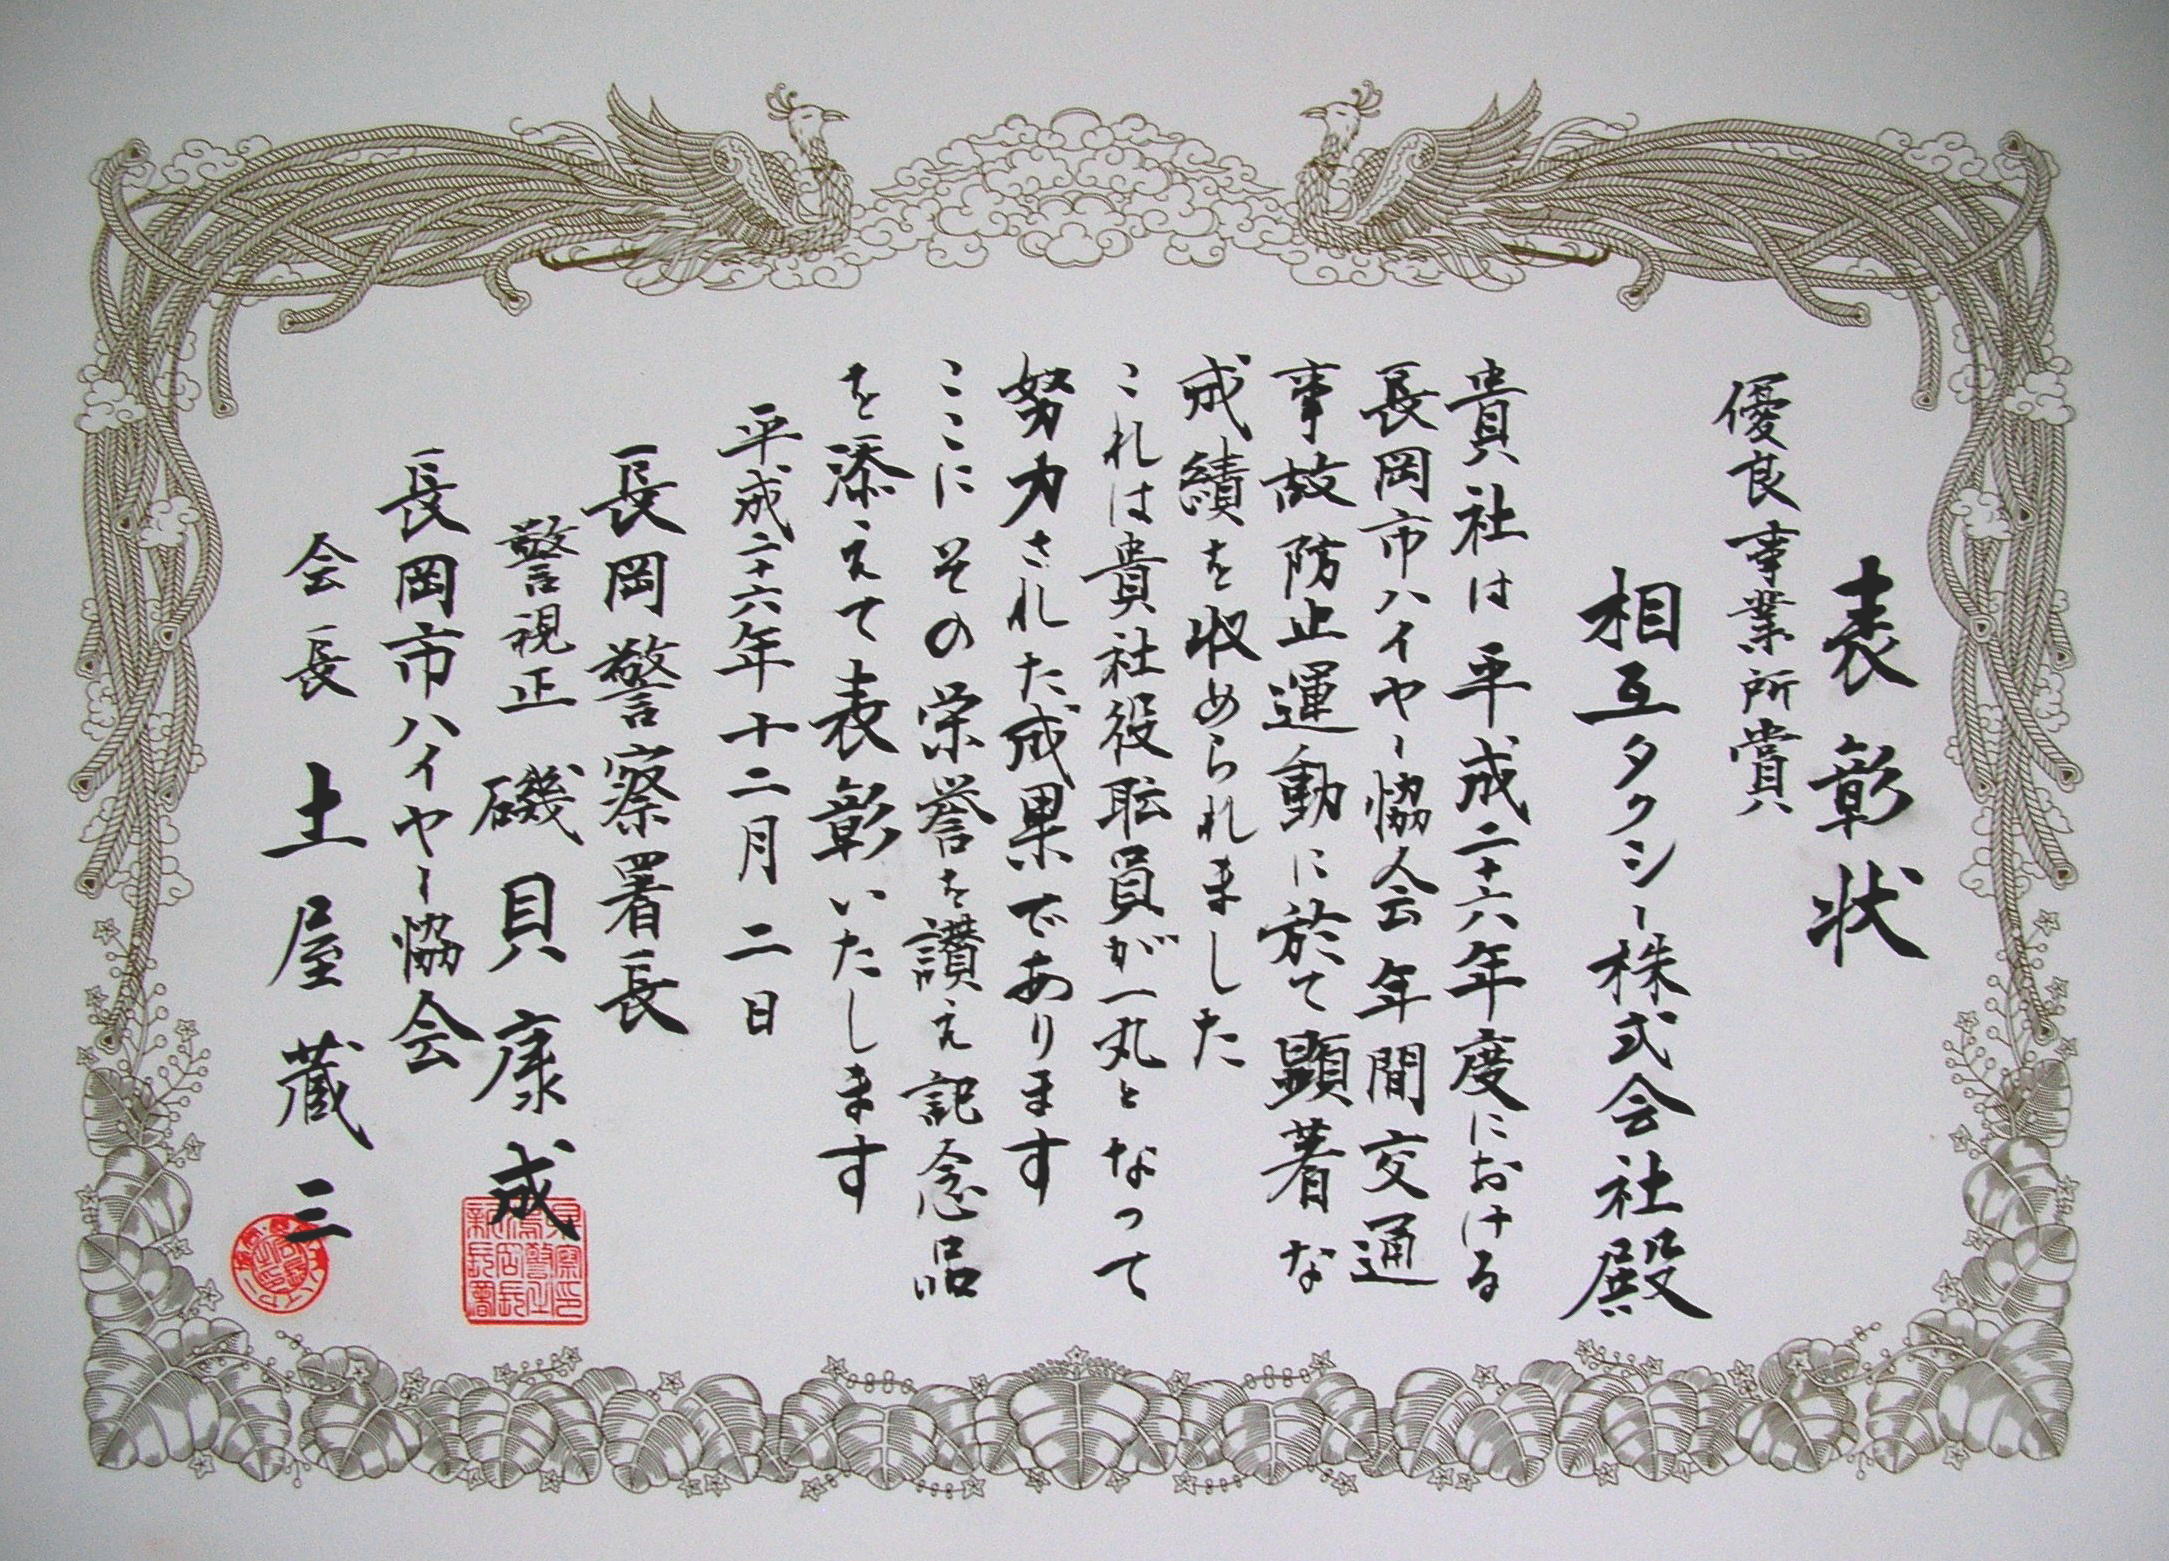 表彰状
優良事業所賞
相互タクシー株式会社殿
貴社は平成二十六年度における
長岡市ハイヤー協会年間交通
事故防止運動に於て顕著な
成績を収められました
これは貴社役職員が一丸となって
努力された成果であります
ここにその栄誉を讃え記念品
を添えて表彰いたします
平成二十六年十二月二日
長岡警察署長
警視正 磯貝康成
長岡市ハイヤー協会
会長 土屋蔵三